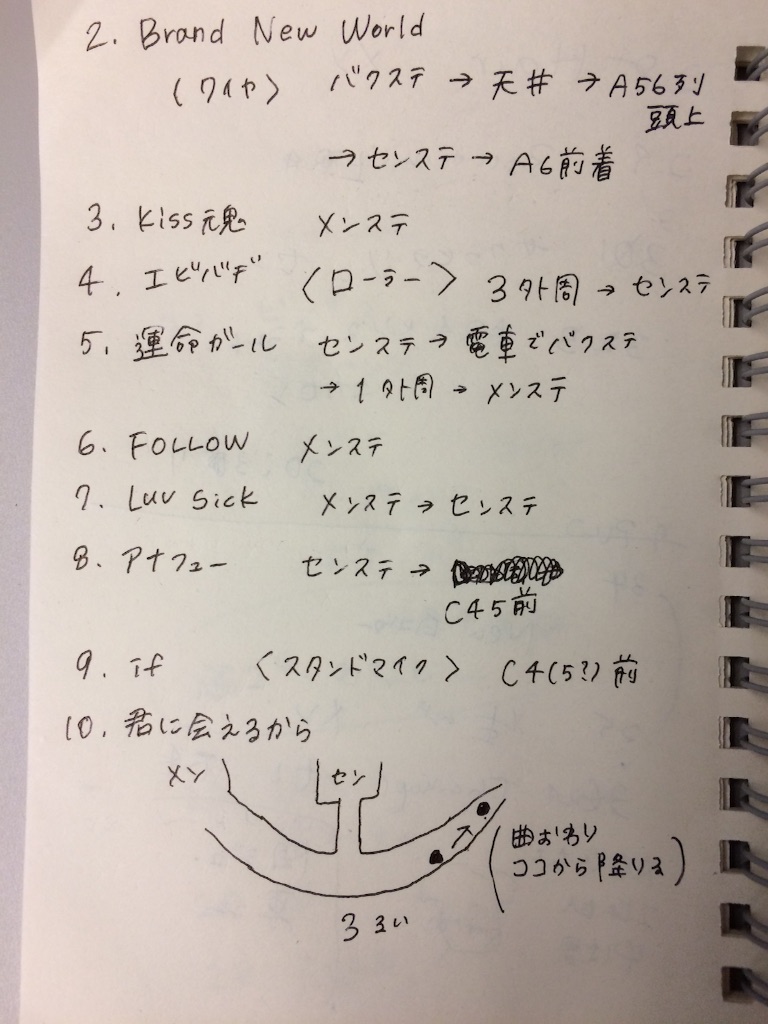 2. Brand New World
〈ワイヤ〉 バクステ → 天井 → A56列
頭上
→ センステ → A6前着
3. Kiss魂 メンステ
4. エビバデ 〈ローラー〉 3外周 → センステ
5. 運命ガール センステ → 電車でバクステ
→ 1外周 → メンステ
6. FOLLOW メンステ
7. Luv Sick メンステ → センステ
8. アナフュー センステ →
C45前
9. if 〈スタンドマイク〉 C4(5?)前
10. 君に会えるから
メン セン
(曲おわり
ココから降りる)
3るい